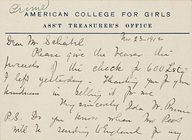 Crime
AMERICAN COLLEGE FOR GIRLS
ASST TREASURER'S OFFICE
Nov 23 1912
Dear Mr. 
Please give the bearer the
proceeds of the check for 600
I left yesterday. Thanking you for your
kindness in selling it for me
Very sincerely, Ida W.
P.S. Do you know when Mr.
will be reaching England